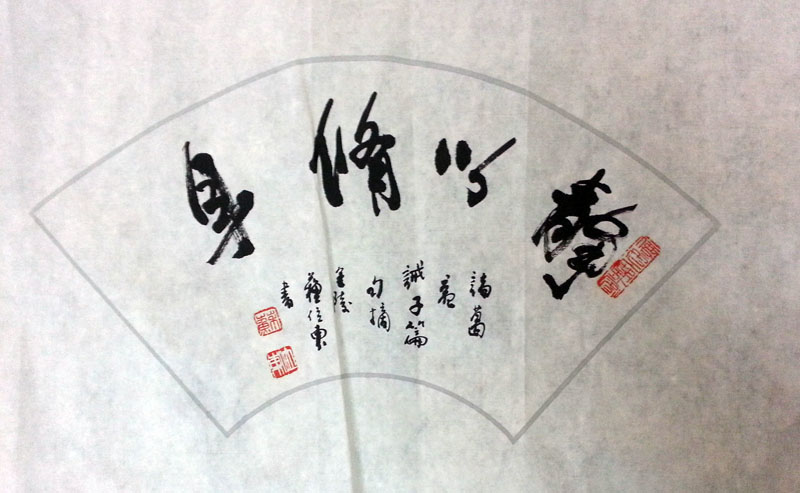 靜以脩身
諸葛
亮
誡子篇
句摘
金陵
蘇位東
書